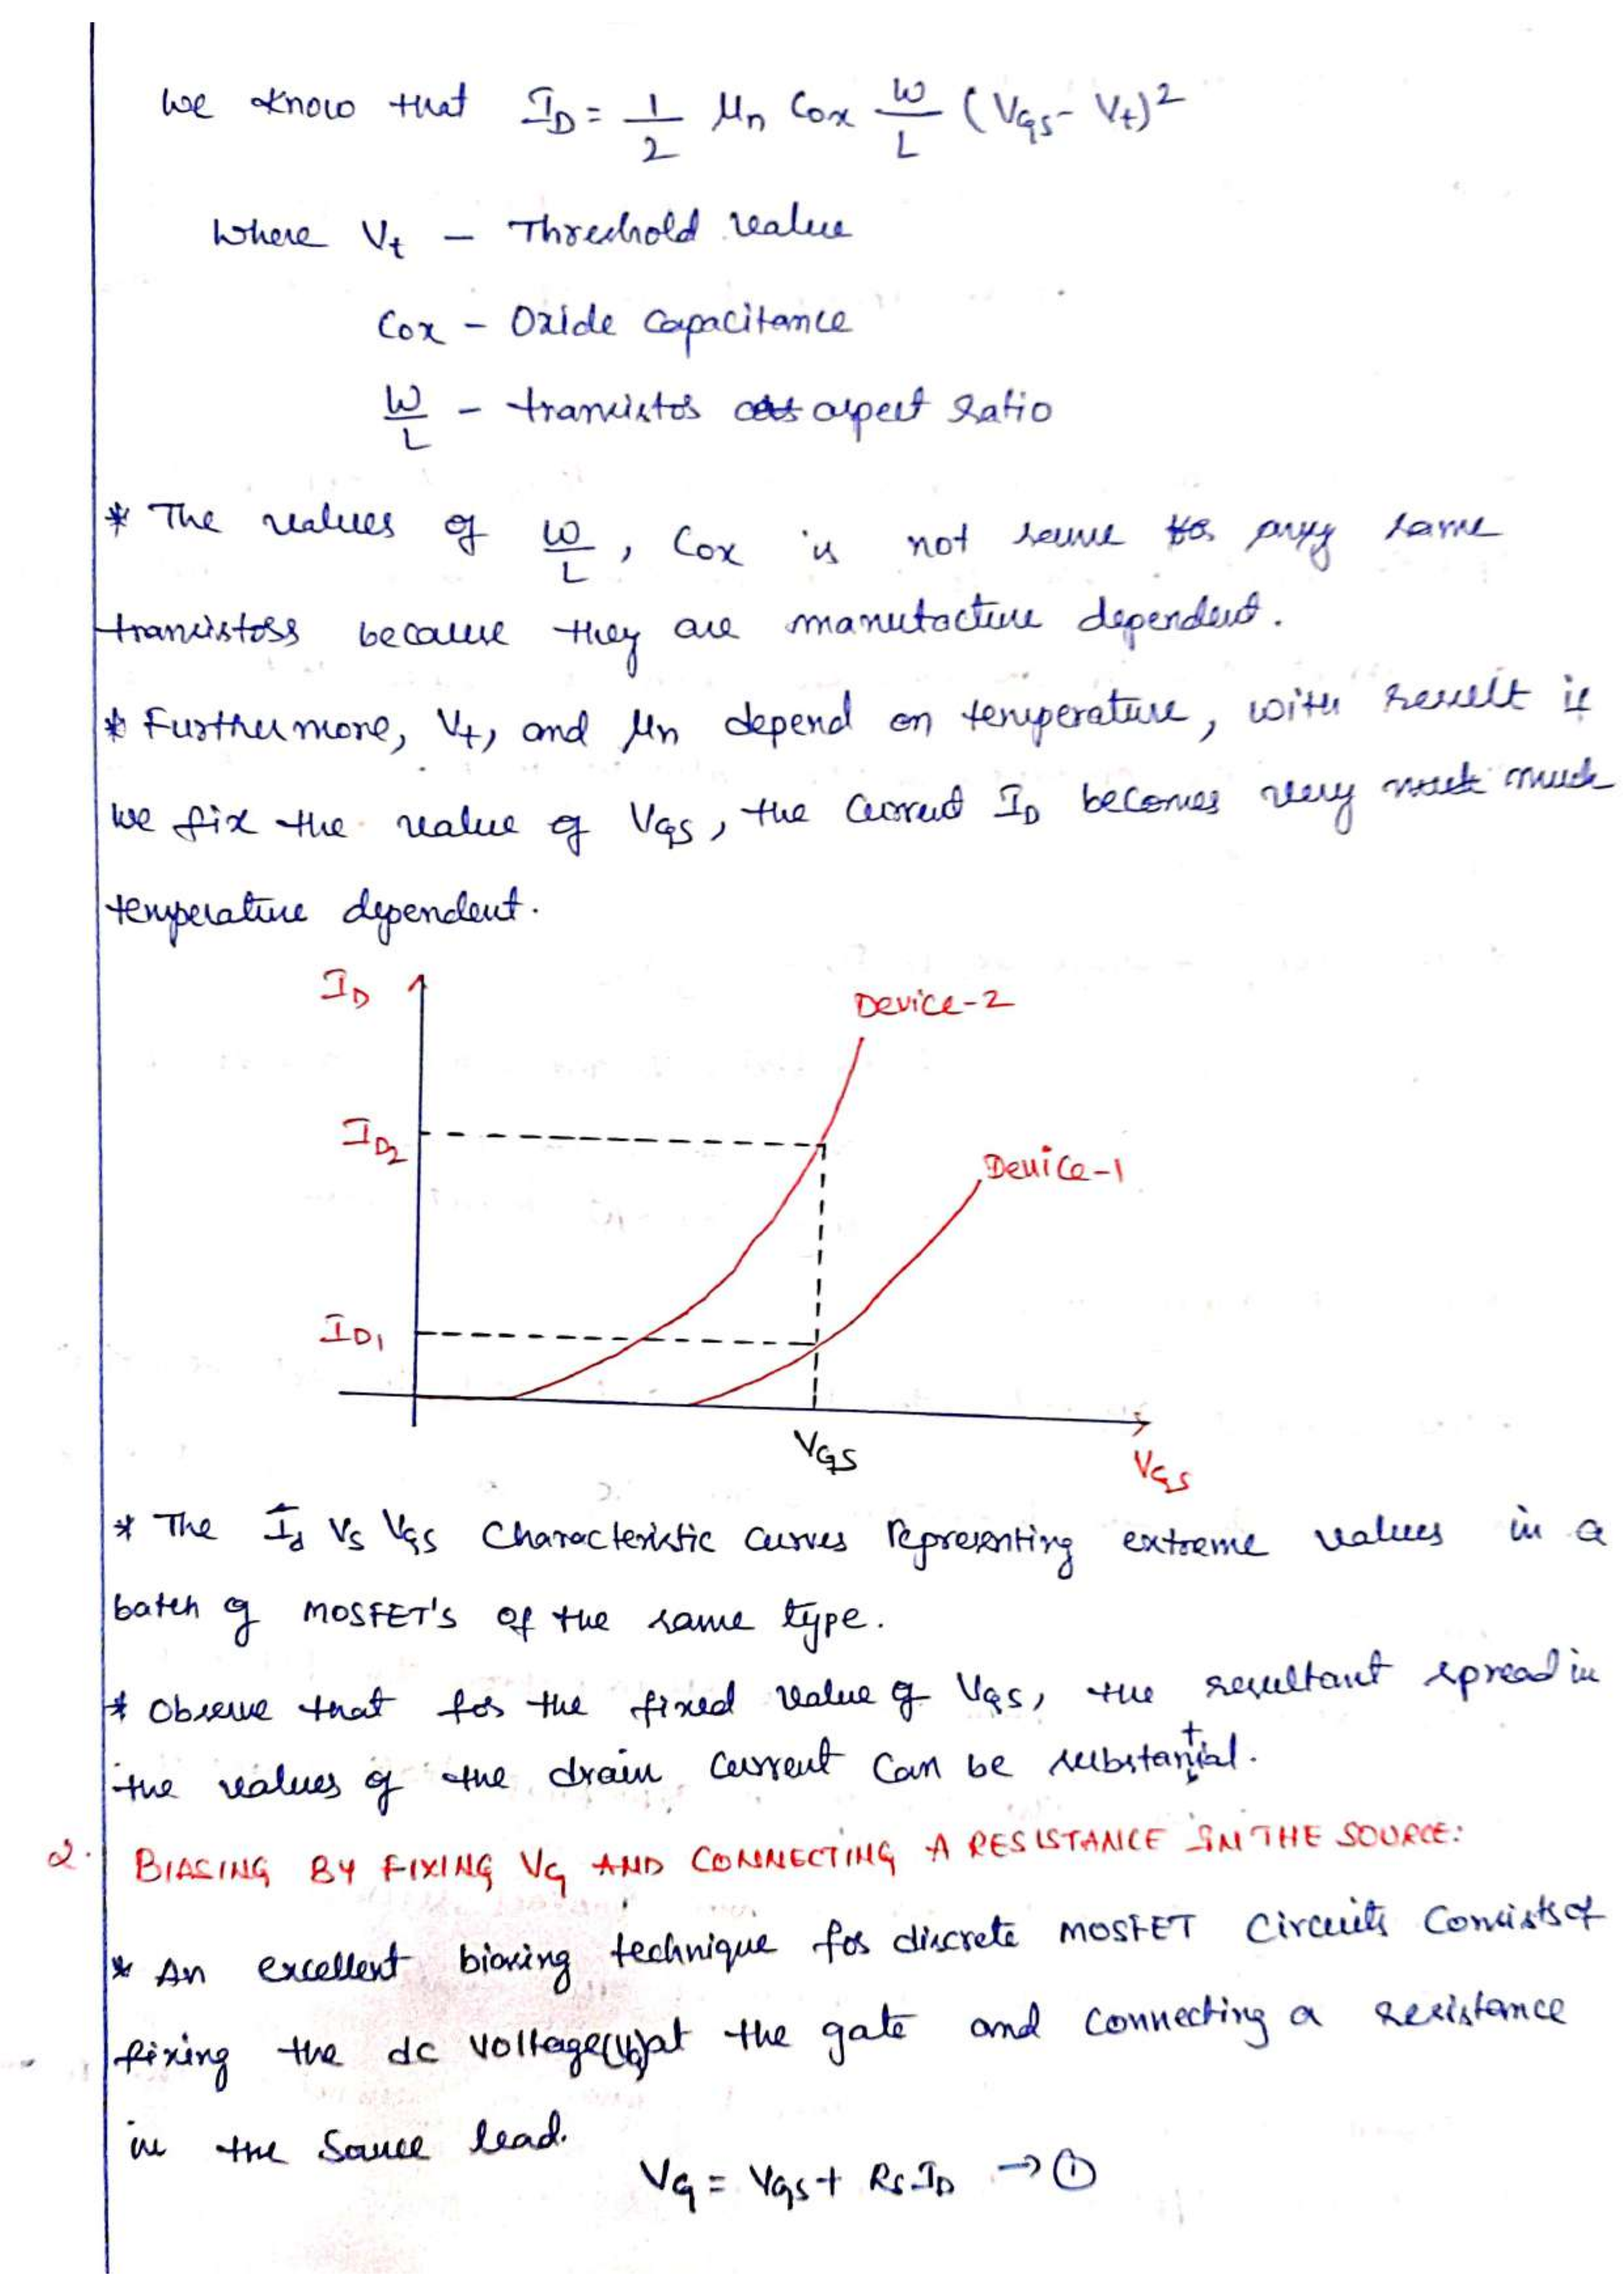 We know that I_D = 1/2 μn Cox W/L (V_GS - V_t)²
Where V_t - Threshold value
Cox - Oxide Capacitance
W/L - transistor aspect ratio
* The values of W/L, Cox is not same for any same
transistors because they are manufacture dependent.
* Furthermore, V_t, and μn depend on temperature, with result if
we fix the value of V_GS, the current I_D becomes very much
temperature dependent.
I_D
Device-2
I_D2
Device-1
I_D1
V_GS
V_GS
* The I_d Vs V_GS Characteristic curves representing extreme values in a
batch of MOSFET'S of the same type.
* Observe that for the fixed value of V_GS, the resultant spread in
the values of the drain current can be substantial.
2. BIASING BY FIXING V_G AND CONNECTING A RESISTANCE IN THE SOURCE:
* An excellent biasing technique for discrete MOSFET Circuits Consists of
fixing the dc voltage(V_G)at the gate and connecting a resistance
in the Source lead.
V_G = V_GS + R_S I_D → ①